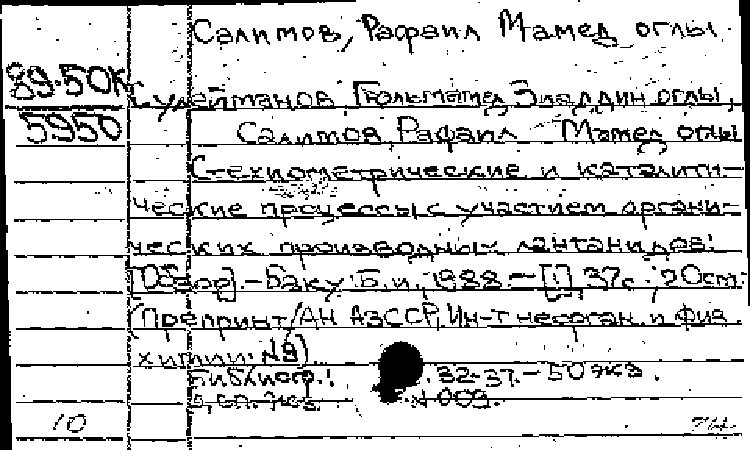 Салимов, Рафаил Мамед оглы
89-50к
5950
Сулейманов, Гюльмамед Зиаддин оглы,
Салимов, Рафаил Мамед оглы
Стехиометрические и каталити-
ческие процессы с участием органи-
ческих производных лантанидов:
[Обзор] - Баку: Б.и., 1988 - [1], 37с.; 20см.
(Препринт/АН АзССР, Ин-т неорган. и физ.
химии: №9)
Библиогр.: 32-37. - 50 экз.
№ 009.
10